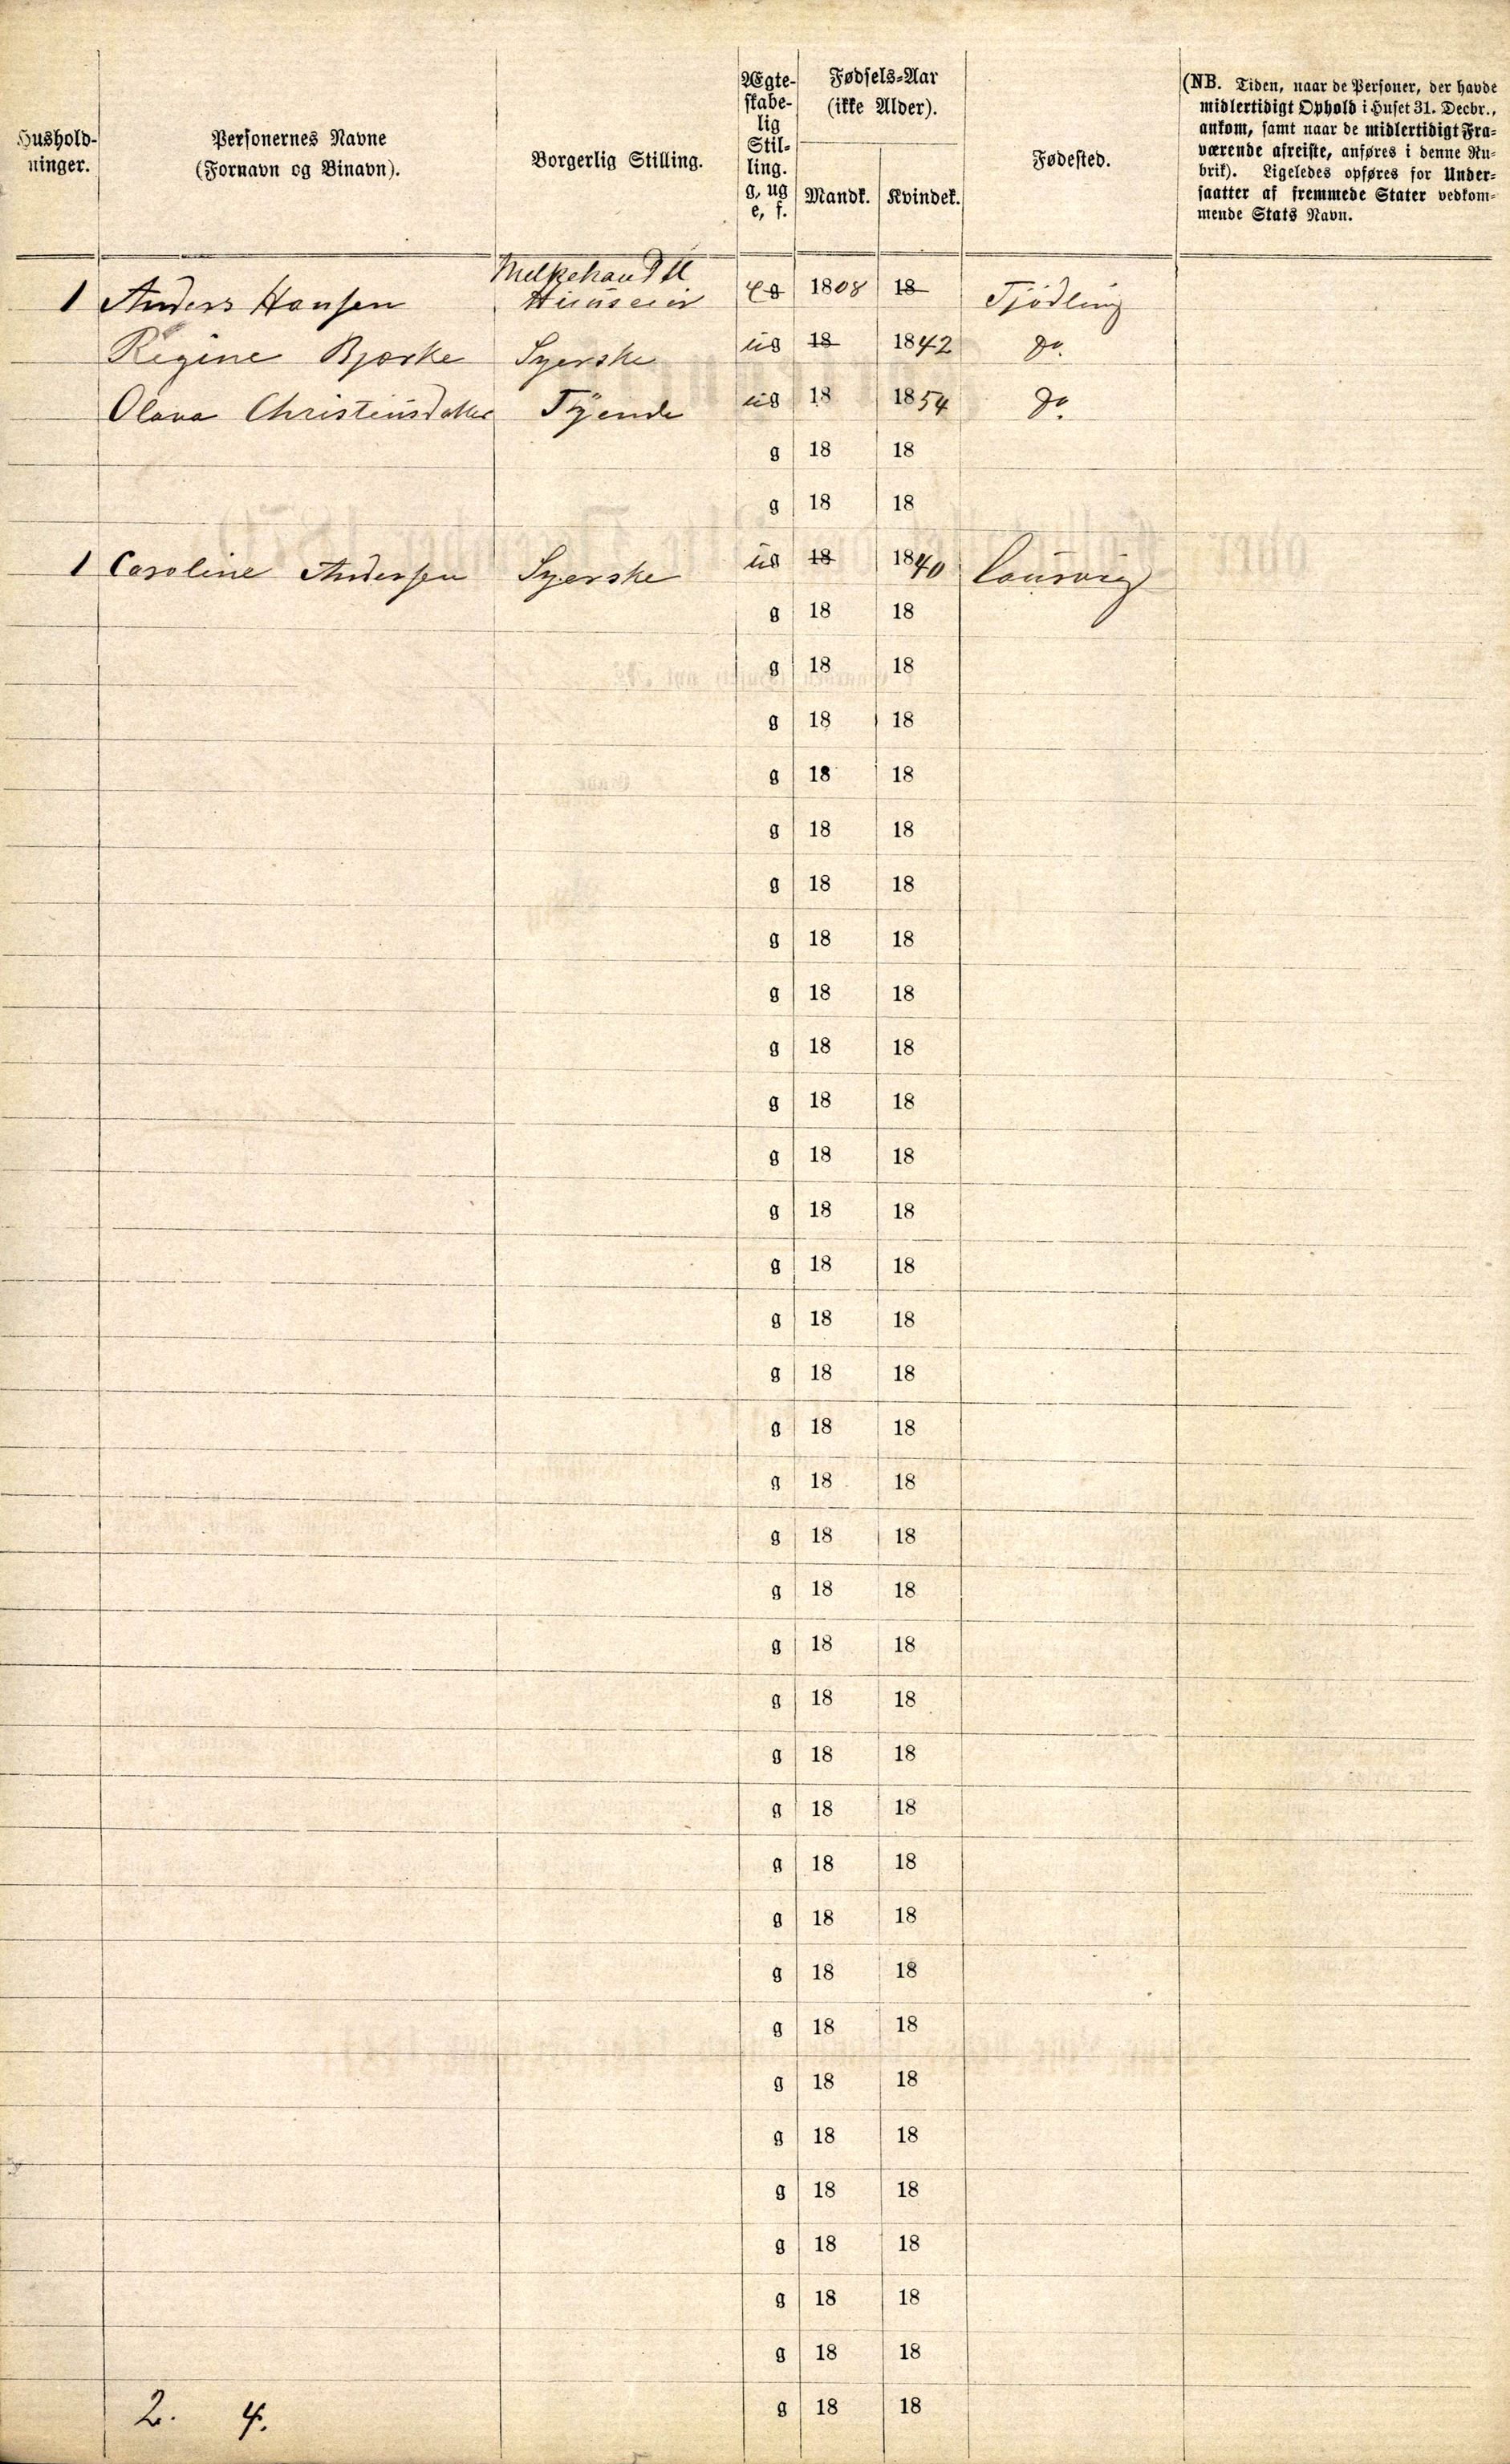 Hushold-
ninger.
Personernes Navne
(Fornavn og Binavn).
Borgerlig Stilling.
Ægte-
skabe-
lig
Stil-
ling.
g, ug
e, f.
Fødsels-Aar
(ikke Alder).
Mandk.
Kvindek.
Fødested.
(NB. Tiden, naar de Personer, der havde
midlertidigt Ophold i Huset 31. Decbr.,
ankom, samt naar de midlertidigt Fra-
værende afreiste, anføres i denne Ru-
brik). Ligeledes opføres for Under-
saatter af fremmede Stater vedkom-
mende Stats Navn.
Melkehandll
1 Anders Hansen Huuseier eg 1808 18 Tjødling
Regine Bjørke Syerske ug 18 1842 Do.
Olava Christensdatter Tyende ug 18 1854 Do.
g 18 18
g 18 18
1 Caroline Andersen Syerske ug 18 1840 Laurvig
g 18 18
g 18 18
g 18 18
g 18 18
g 18 18
g 18 18
g 18 18
g 18 18
g 18 18
g 18 18
g 18 18
g 18 18
g 18 18
g 18 18
g 18 18
g 18 18
g 18 18
g 18 18
g 18 18
g 18 18
g 18 18
g 18 18
g 18 18
g 18 18
g 18 18
g 18 18
g 18 18
g 18 18
g 18 18
g 18 18
g 18 18
g 18 18
g 18 18
g 18 18
2. 4.